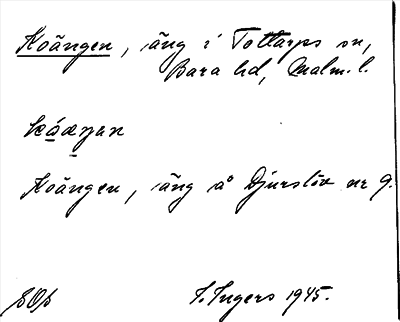 Koängen, äng i Tottarps sn,
Bara hd, Malm. l.
Koängen, äng å Djurslöv nr 9.
I. Ingers 1945.